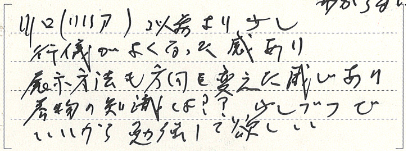 川口(リリア) 以前より少し
行儀がよくなった感あり
展示方法も方向を変えた感じあり
着物の知識は?? 少しづつで
いいから勉強して欲しい